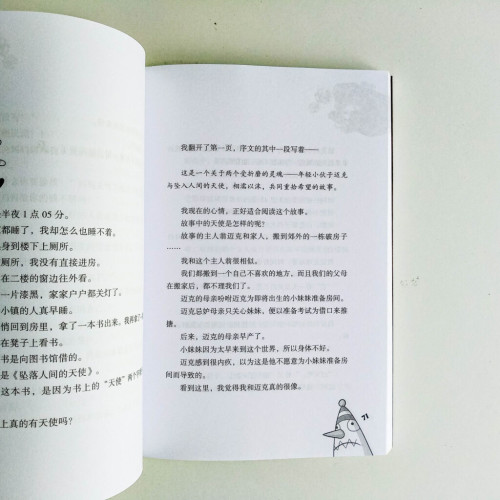 半夜1点05分。
都睡了，我却怎么也睡不着。
身到楼下上厕所。
厕所，我没有直接进房。
在二楼的窗边往外看。
一片漆黑，家家户户都关灯了。
小镇的人真早睡。
情回到房里，拿了一本书出来。
在凳子上看书。
书是向图书馆借的。
是《坠落人间的天使》。
这本书，是因为书上的“天使”两个
上真的有天使吗？
我翻开了第一页，序文的其中一段写着——
这是一个关于两个受折磨的灵魂——年轻小伙子迈克
与坠入人间的天使，相濡以沫，共同重拾希望的故事。
我现在的心情，正好适合阅读这个故事。
故事中的天使是怎样的呢？
故事的主人翁迈克和家人，搬到郊外的一栋破房子
……
我和这个主人翁很相似。
我们都搬到一个自己不喜欢的地方，而且我们的父母
在搬家后，都不理我们了。
迈克的母亲吩咐迈克为即将出生的小妹妹准备房间。
迈克忌妒母亲只关心妹妹，便以准备考试为借口来推
搪。
后来，迈克的母亲早产了。
小妹妹因为太早来到这个世界，所以身体不好。
迈克感到很内疚，以为这是他不愿意为小妹妹准备房
间而导致的。
看到这里，我觉得我和迈克真的很像。
71